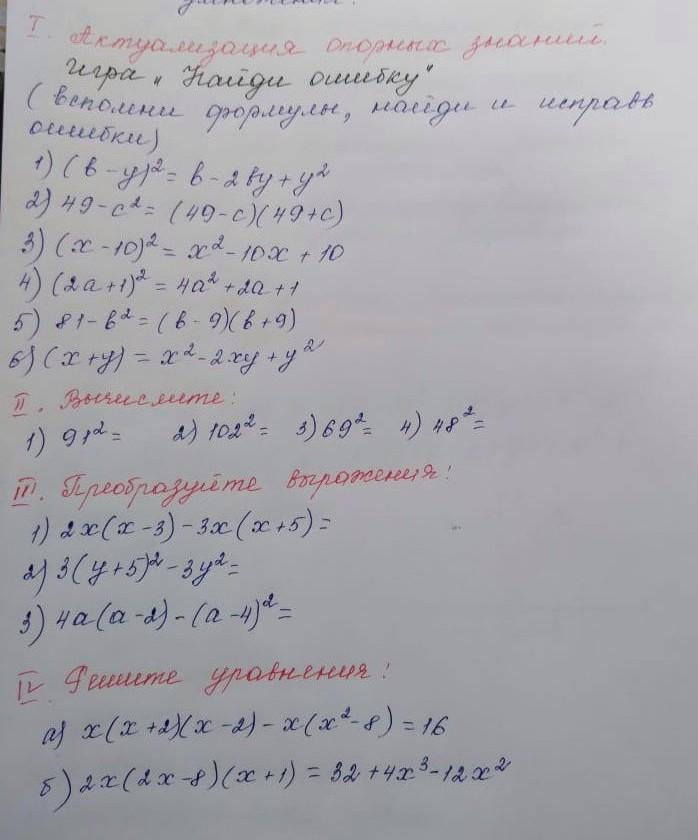 умножения.
I. Актуализация опорных знаний.
Игра „Найди ошибку"
(вспомни формулы, найди и исправь
ошибки)
1) (b-y)² = b-2by+y²
2) 49-c² = (49-c)(49+c)
3) (x-10)² = x²-10x+10
4) (2a+1)² = 4a²+2a+1
5) 81-b² = (b-9)(b+9)
6) (x+y) = x²-2xy+y²
II. Вычислите:
1) 91² = 2) 102² = 3) 69² = 4) 48² =
III. Преобразуйте выражения:
1) 2x(x-3)-3x(x+5)=
2) 3(y+5)²-3y²=
3) 4a(a-2)-(a-4)²=
IV Решите уравнения:
а) x(x+2)(x-2)-x(x²-8)=16
б) 2x(2x-8)(x+1) = 32+4x³-12x²